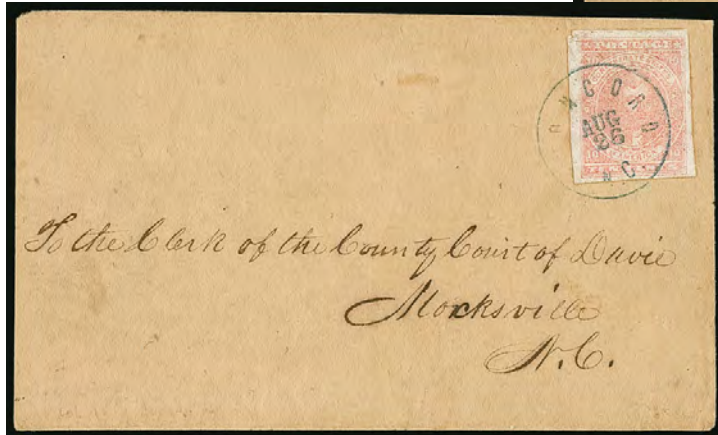 CONCORD
AUG
26
N.C.
To the Clerk of the County Court of Davie
Mocksville
N.C.